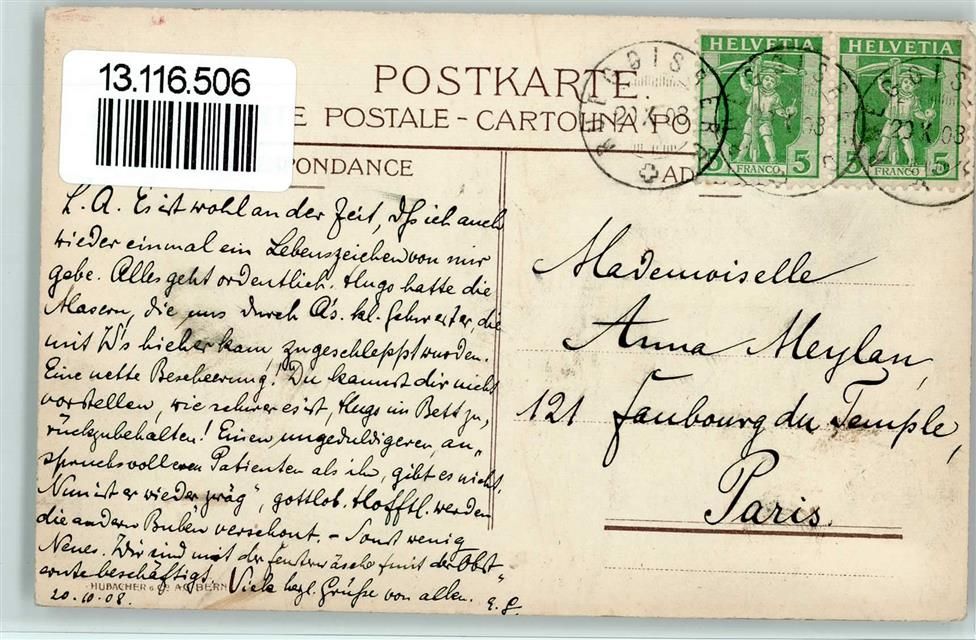 13.116.506
POSTKARTE.
E POSTALE - CARTOLINA PO
PONDANCE
AD
HELVETIA
5 FRANCO 5
HELVETIA
5 FRANCO 5
L. A. Es ist wohl an der Zeit, dß ich auch
wieder einmal ein Lebenszeichen von mir
gebe. Alles geht ordentlich. Hugo hatte die
Masern, die uns durch A's. kl. Schwester, die
mit W's hieher kam, zugeschleppt wurden.
Eine nette Bescheerung! Du kannst dir nicht
vorstellen, wie schwer es ist, Hugo im Bett zu,
rückzubehalten! Einen ungeduldigeren, an„
spruchsvolleren Patienten als ihn, gibt es nicht.
Nun ist er wieder „zwäg“, gottlob. Hofftl. werden
die andern Buben verschont. – Sonst wenig
Neues. Wir sind mit der & mit der Obst„
ernte beschäftigt. Viele hzgl. Grüße von allen.
20.10.08. E. G.
HUBACHER & Co AG BERN
Mademoiselle
Anna Meylan,
121 Faubourg du Temple,
Paris.